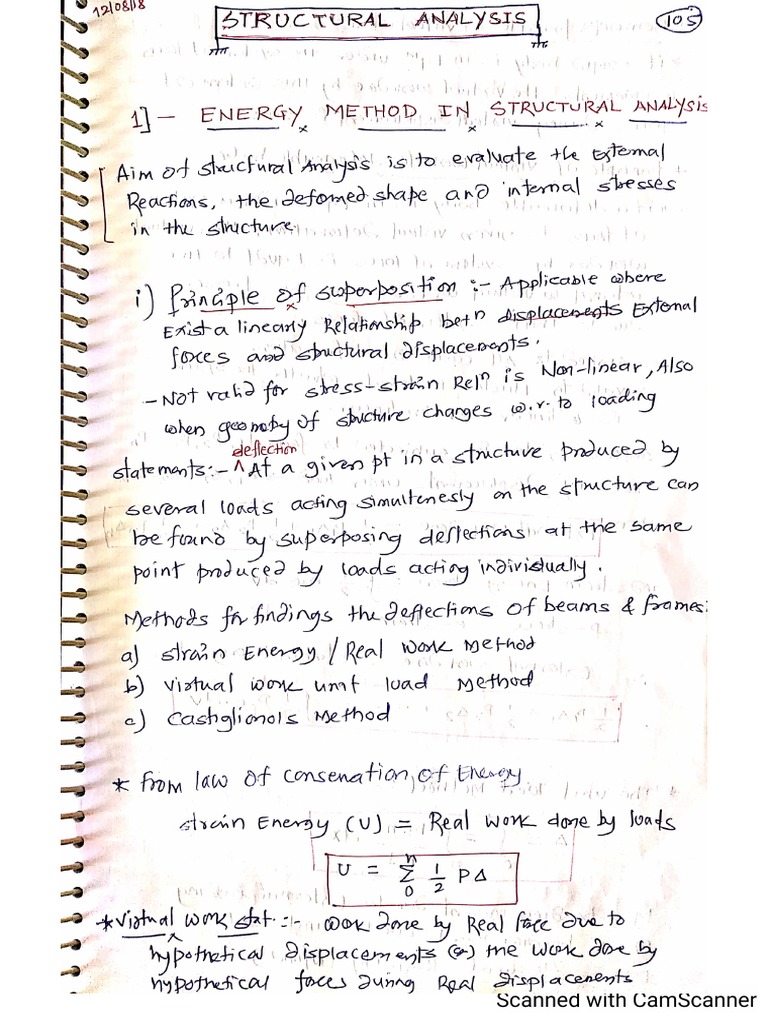 12/08/18
STRUCTURAL ANALYSIS
105
1] - ENERGY METHOD IN STRUCTURAL ANALYSIS
Aim of structural Analysis is to evaluate the External
Reactions, the deformed shape and internal stresses
in the structure
i) Principle of superposition :- Applicable where
Exist a linearly Relationship betn displacements External
forces and structural displacements.
- Not valid for stress-strain Reln is Non-linear, Also
when geometry of structure changes w.r. to loading
deflection
statements:- ^ At a given pt in a structure produced by
several loads acting simultenesly on the structure can
be found by superposing deflections at the same
point produced by loads acting individually.
Methods for findings the deflections of beams & frames:
a) strain Energy / Real work Method
b) virtual work unit load Method
c) Castiglionois Method
* from law of consenation of Energy
strain Energy (U) = Real work done by loads
U = n Σ 0 1/2 P Δ
* virtual work stat. :- work done by Real force due to
hypothetical displacements (or) the work done by
hypothetical forces during Real displacements
Scanned with CamScanner